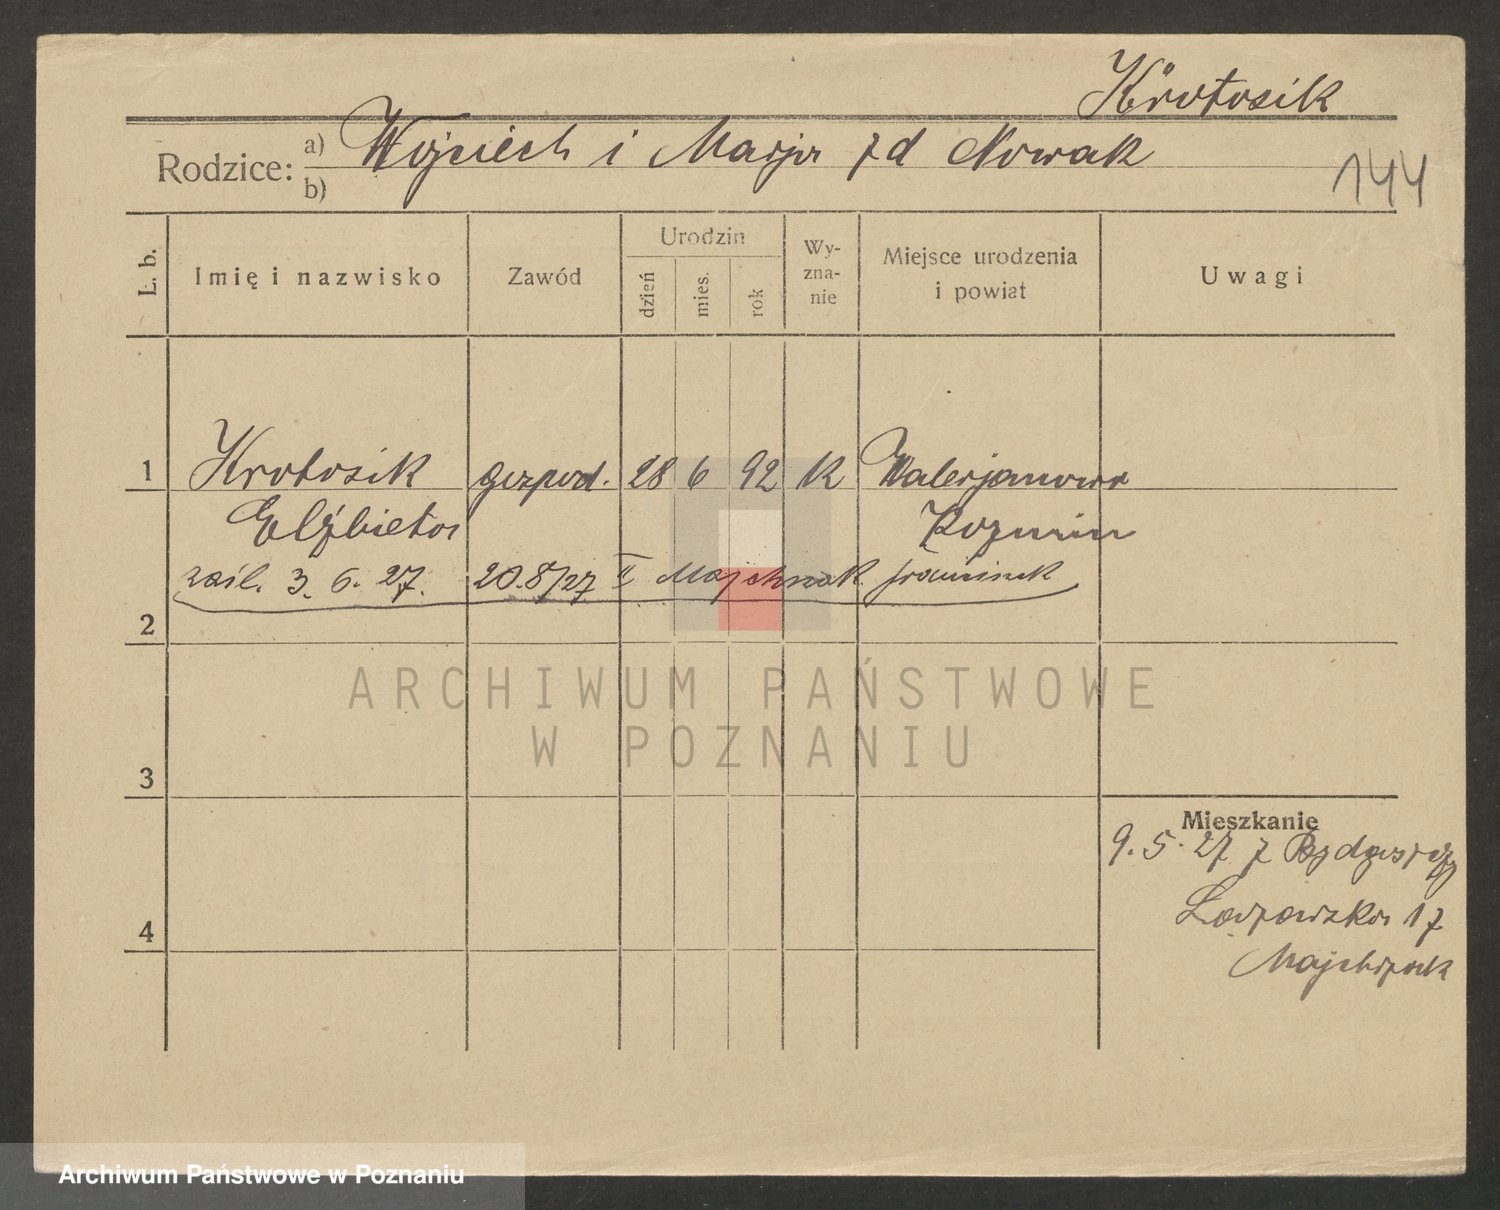 Krotosik
Rodzice: a) Wojciech i Marja zd Nowak
b)
144
L. b.
Imię i nazwisko
Zawód
Urodzin
dzień
mies.
rok
Wy-
zna-
nie
Miejsce urodzenia
i powiat
Uwagi
1 Krotosik gospod. 28 6 92 K Walerjanowo
Elżbieta Kozmin
zaśl. 3. 6. 27. 20.8/27 II Majchrzak
2
3
4
Mieszkanie
9. 5. 27 z Bydgoszczy
17
Majchrzak
ARCHIWUM PAŃSTWOWE
W POZNANIU
Archiwum Państwowe w Poznaniu